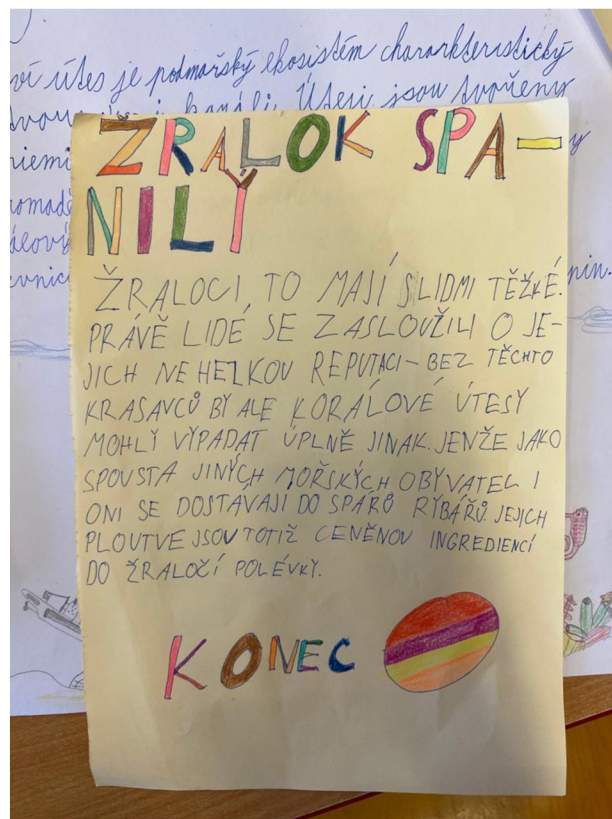 ví útes je podmořský ekosistém charakteristický
Útesi jsou tvořeny
ŽRALOK SPA-
NILÝ
ŽRALOCI, TO MAJÍ SLIDMI TĚŽKÉ.
PRÁVĚ LIDÉ SE ZASLOUŽILI O JE-
JICH NEHEZKOU REPUTACI - BEZ TĚCHTO
KRASAVCŮ BY ALE KORÁLOVÉ ÚTESY
MOHLY VYPADAT ÚPLNĚ JINAK. JENŽE JAKO
SPOUSTA JINÝCH MOŘSKÝCH OBYVATEL I
ONI SE DOSTÁVAJÍ DO SPÁRŮ RYBÁŘŮ. JEJICH
PLOUTVE JSOU TOTIŽ CENĚNOU INGREDIENCÍ
DO ŽRALOČÍ POLÉVKY.
KONEC